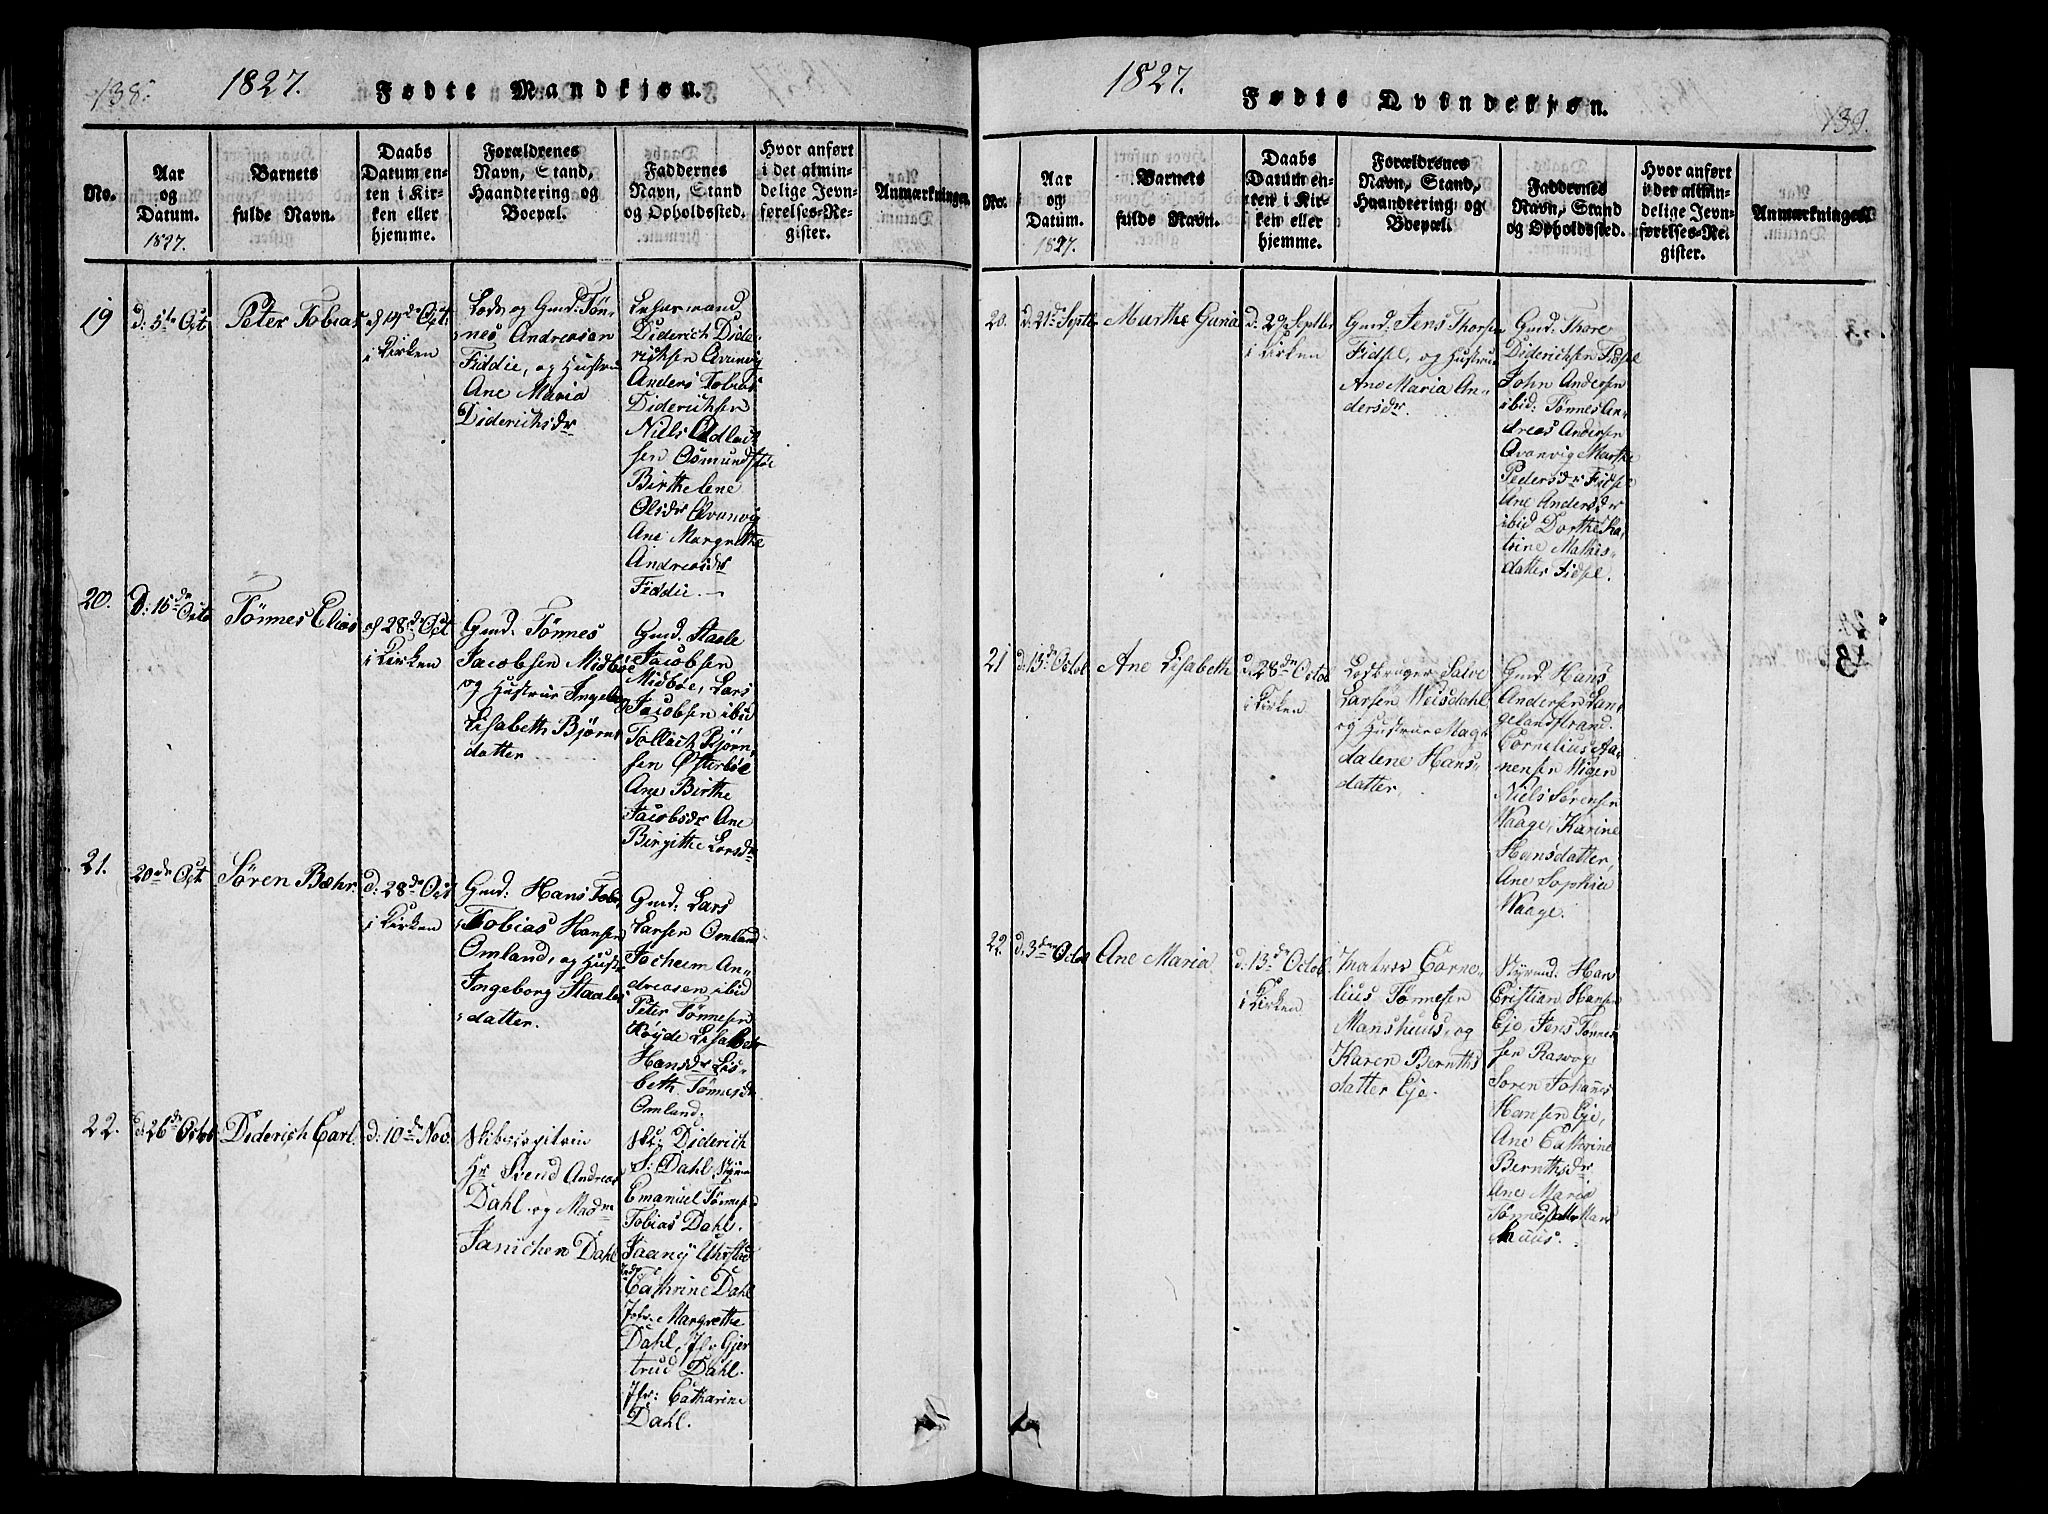 138.
1827.
Fødte Mandkjøn.
No.
Aar
og
Datum.
1827.
Barnets
fulde Navn.
Daabs
Datum en-
ten i Kir-
ken eller
hjemme.
Forældrenes
Navn, Stand,
Haandtering og
Boepæl.
Faddernes
Navn, Stand
og Opholdssted.
Hvor anført
i det almin-
delige Jevn-
førelses-Re-
gister.
Anmærkninger.
19
d: 5te Oct
Peter Tobias
d 19de Oct.
i Kirken
Lods og Gmd: Tøn-
nes Andreasen
Fiddie, og Hustru
Ane Maria
Diderichsdr
Diderich Dide-
richsen Qvanvig
Anders Tobias
Diderichsen
Niels Adlach
sen Osmundstøe
Birthe Lene
Olsdr Qvanvig
Ane Margrethe
Andreasdr
Fiddie.
20.
D: 15de Octo
Tønnes Elias
d 28de Oct
i Kirken
Gmd: Tønnes
Jacobsen Midbøe
og Hustrue Ingebor
Lisabeth Bjørns
datter
Gmd. Staale
Jacobsen
Midbøe, Lars
Jacobsen ibid
Tollach Bjørn-
sen Østerbøe
Ane Birthe
Jacobsdr Ane
Birgithe Larsdr
21.
20de Oct.
Søren Bæhr.
D: 28de Oct
i Kirken
Gmd: Hans Tobi-
Tobias Hansen
Omland, og Hustr
Ingeborg Staales
datter.
Gmd: Lars
Larsen Omland
Jocheim An-
dreasen ibid
Peter Tønnesen
Røyde Lisabeth
Hansdr Lis-
beth Tønnesdr
Omland.
22.
d: 26de Octob
Diderich Carl.
d: 10de Nov.
Skibscapitain
Hr Svend Andreas
Dahl og Madme
Janichen Dahl
Diderich
S: Dahl
Emanuel Tønnesen
Tobias Dahl.
Cathrine Dahl
Jfr: Margrethe
Dahl, Jfr Gjer
trud Dahl.
Jfr: Catharine
Dahl.
1827.
Fødte Qvindekjøn.
139.
No.
Aar
og
Datum.
1827.
Barnets
fulde Navn.
Daabs
Datum en-
ten i Kir-
ken eller
hjemme.
Forældrenes
Navn, Stand,
Haandtering og
Boepæl.
Faddernes
Navn, Stand
og Opholdssted.
Hvor anført
i det almin-
delige Jevn-
førelses-Re-
gister.
Anmærkninger.
20.
d: 21de Septb
Marthe Guria
d: 29 Septbr
i Kirken
Gmd: Jens Thorsen
Fidsel, og Hustrue
Ane Maria An-
dersdr.
Gmd: Thore
Diderichsen Fidsel
John Andersen
ibid: Tønnes An-
dreas Andersen
Qvanvig Marthe
Pedersdr Fidsel
Ane Andersdr
ibid Dorthe Ka-
trine Mathis-
datter Fidsel.
21
d: 13de Octob
Ane Lisabeth
d: 28de Octob
i Kirken
Salve
Larsen Weisdahl
og Hustrue Mag-
dalene Hans-
datter.
Gmd: Hans
Andersen Lan-
gelandstrand
Cornelius Aa-
nensen Wigen
Niels Sørensen
Waage, Karine
Hansdatter,
Ane Sophia
Waage.
22.
d: 3de Octob
Ane Maria
d: 13de Octob.
i Kirken
Matros Corne-
lius Tønnesen
Manshuus, og
Karen Bernths
datter Eje.
Styrmd. Hans
Cristian Hansen
Eje Jens Tønnes
sen Rasvog
Soren Johannes
Hansen Eje,
Ane Cathrine
Bernthsdr
Ane Maria
Tønnesdattr Mans
huus.